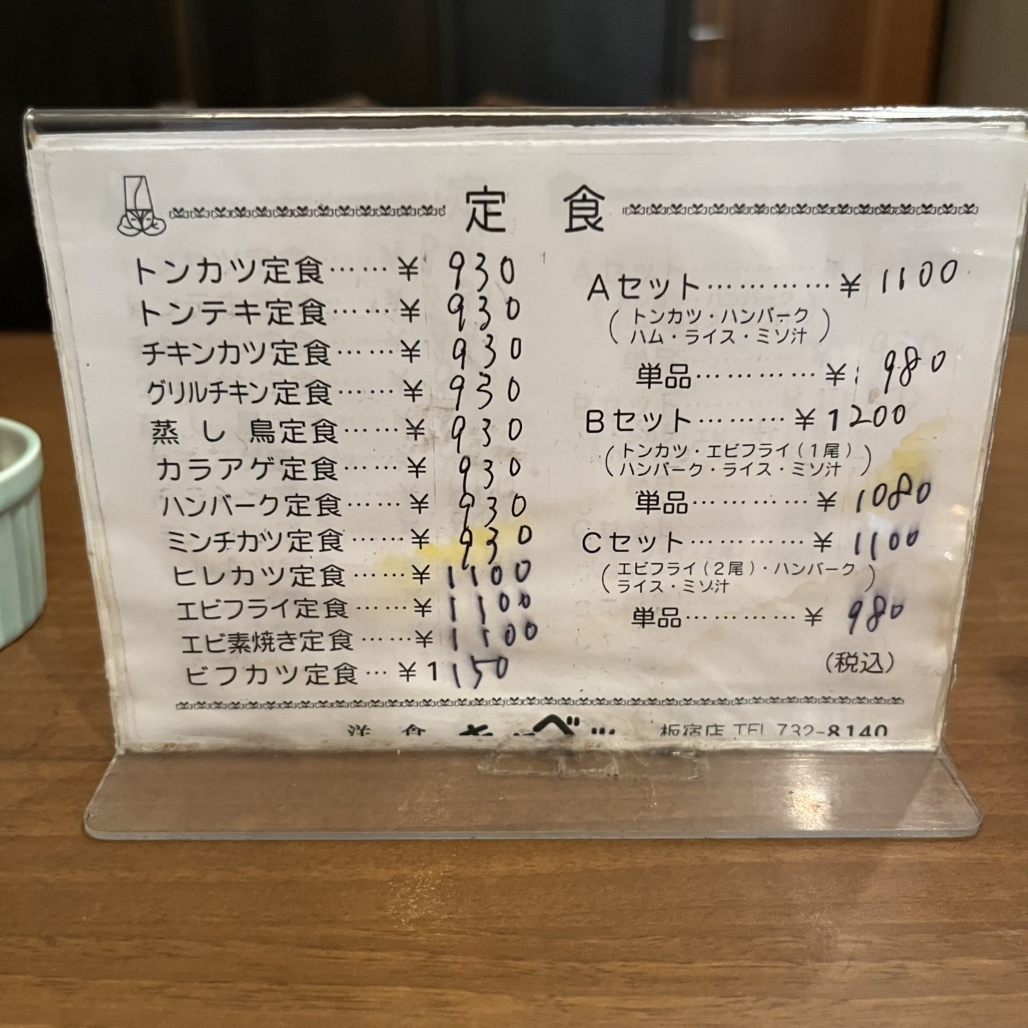 定 食
トンカツ定食……¥ 930
トンテキ定食……¥ 930
チキンカツ定食……¥ 930
グリルチキン定食……¥ 930
蒸 し 鳥定食……¥ 930
カラアゲ定食……¥ 930
ハンバーク定食……¥ 930
ミンチカツ定食……¥ 930
ヒレカツ定食……¥ 1100
エビフライ定食……¥ 1100
エビ素焼き定食……¥ 1100
ビフカツ定食…¥1150
Aセット…………¥ 1100
(トンカツ・ハンバーク
ハム・ライス・ミソ汁)
単品…………¥ 980
Bセット………¥1200
(トンカツ・エビフライ(1尾)
ハンバーク・ライス・ミソ汁)
単品…………¥ 1080
Cセット…………¥ 1100
(エビフライ(2尾)・ハンバーク
ライス・ミソ汁)
単品…………¥ 980
(税込)
洋 食 キャベツ 板宿店 TEL 732-8140